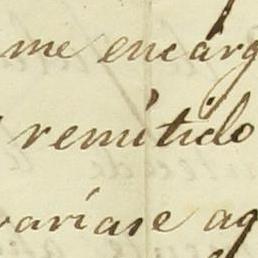 me encarg
remitido
variase ag